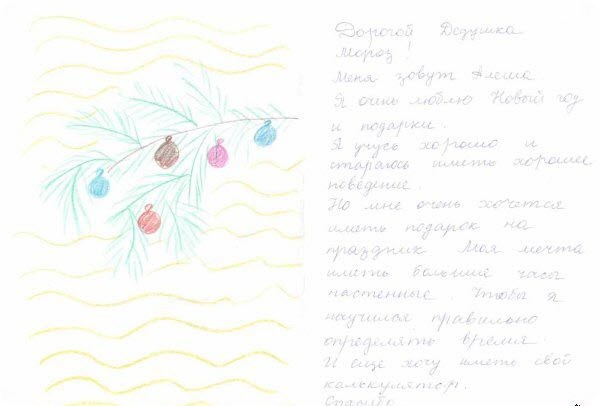 Дорогой Дедушка
Мороз!
Меня зовут
Я очень люблю Новый год
и подарки.
Я учусь хорошо и
стараюсь иметь хорошее
поведение.
Но мне очень хочется
иметь подарок на
праздник Моя мечта
иметь большие часы
настенные. Чтобы я
научился правильно
определять время.
И еще хочу иметь свой
калькулятор.
Спасибо